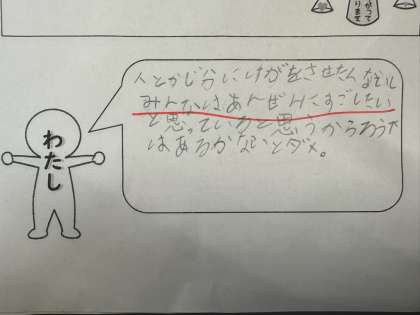 がって
ります
人とかじ分にけがをさせたくないし
みんなはあんぜんにすごしたい
と思っていると思うからろう下
はあるかないとダメ。
わたし